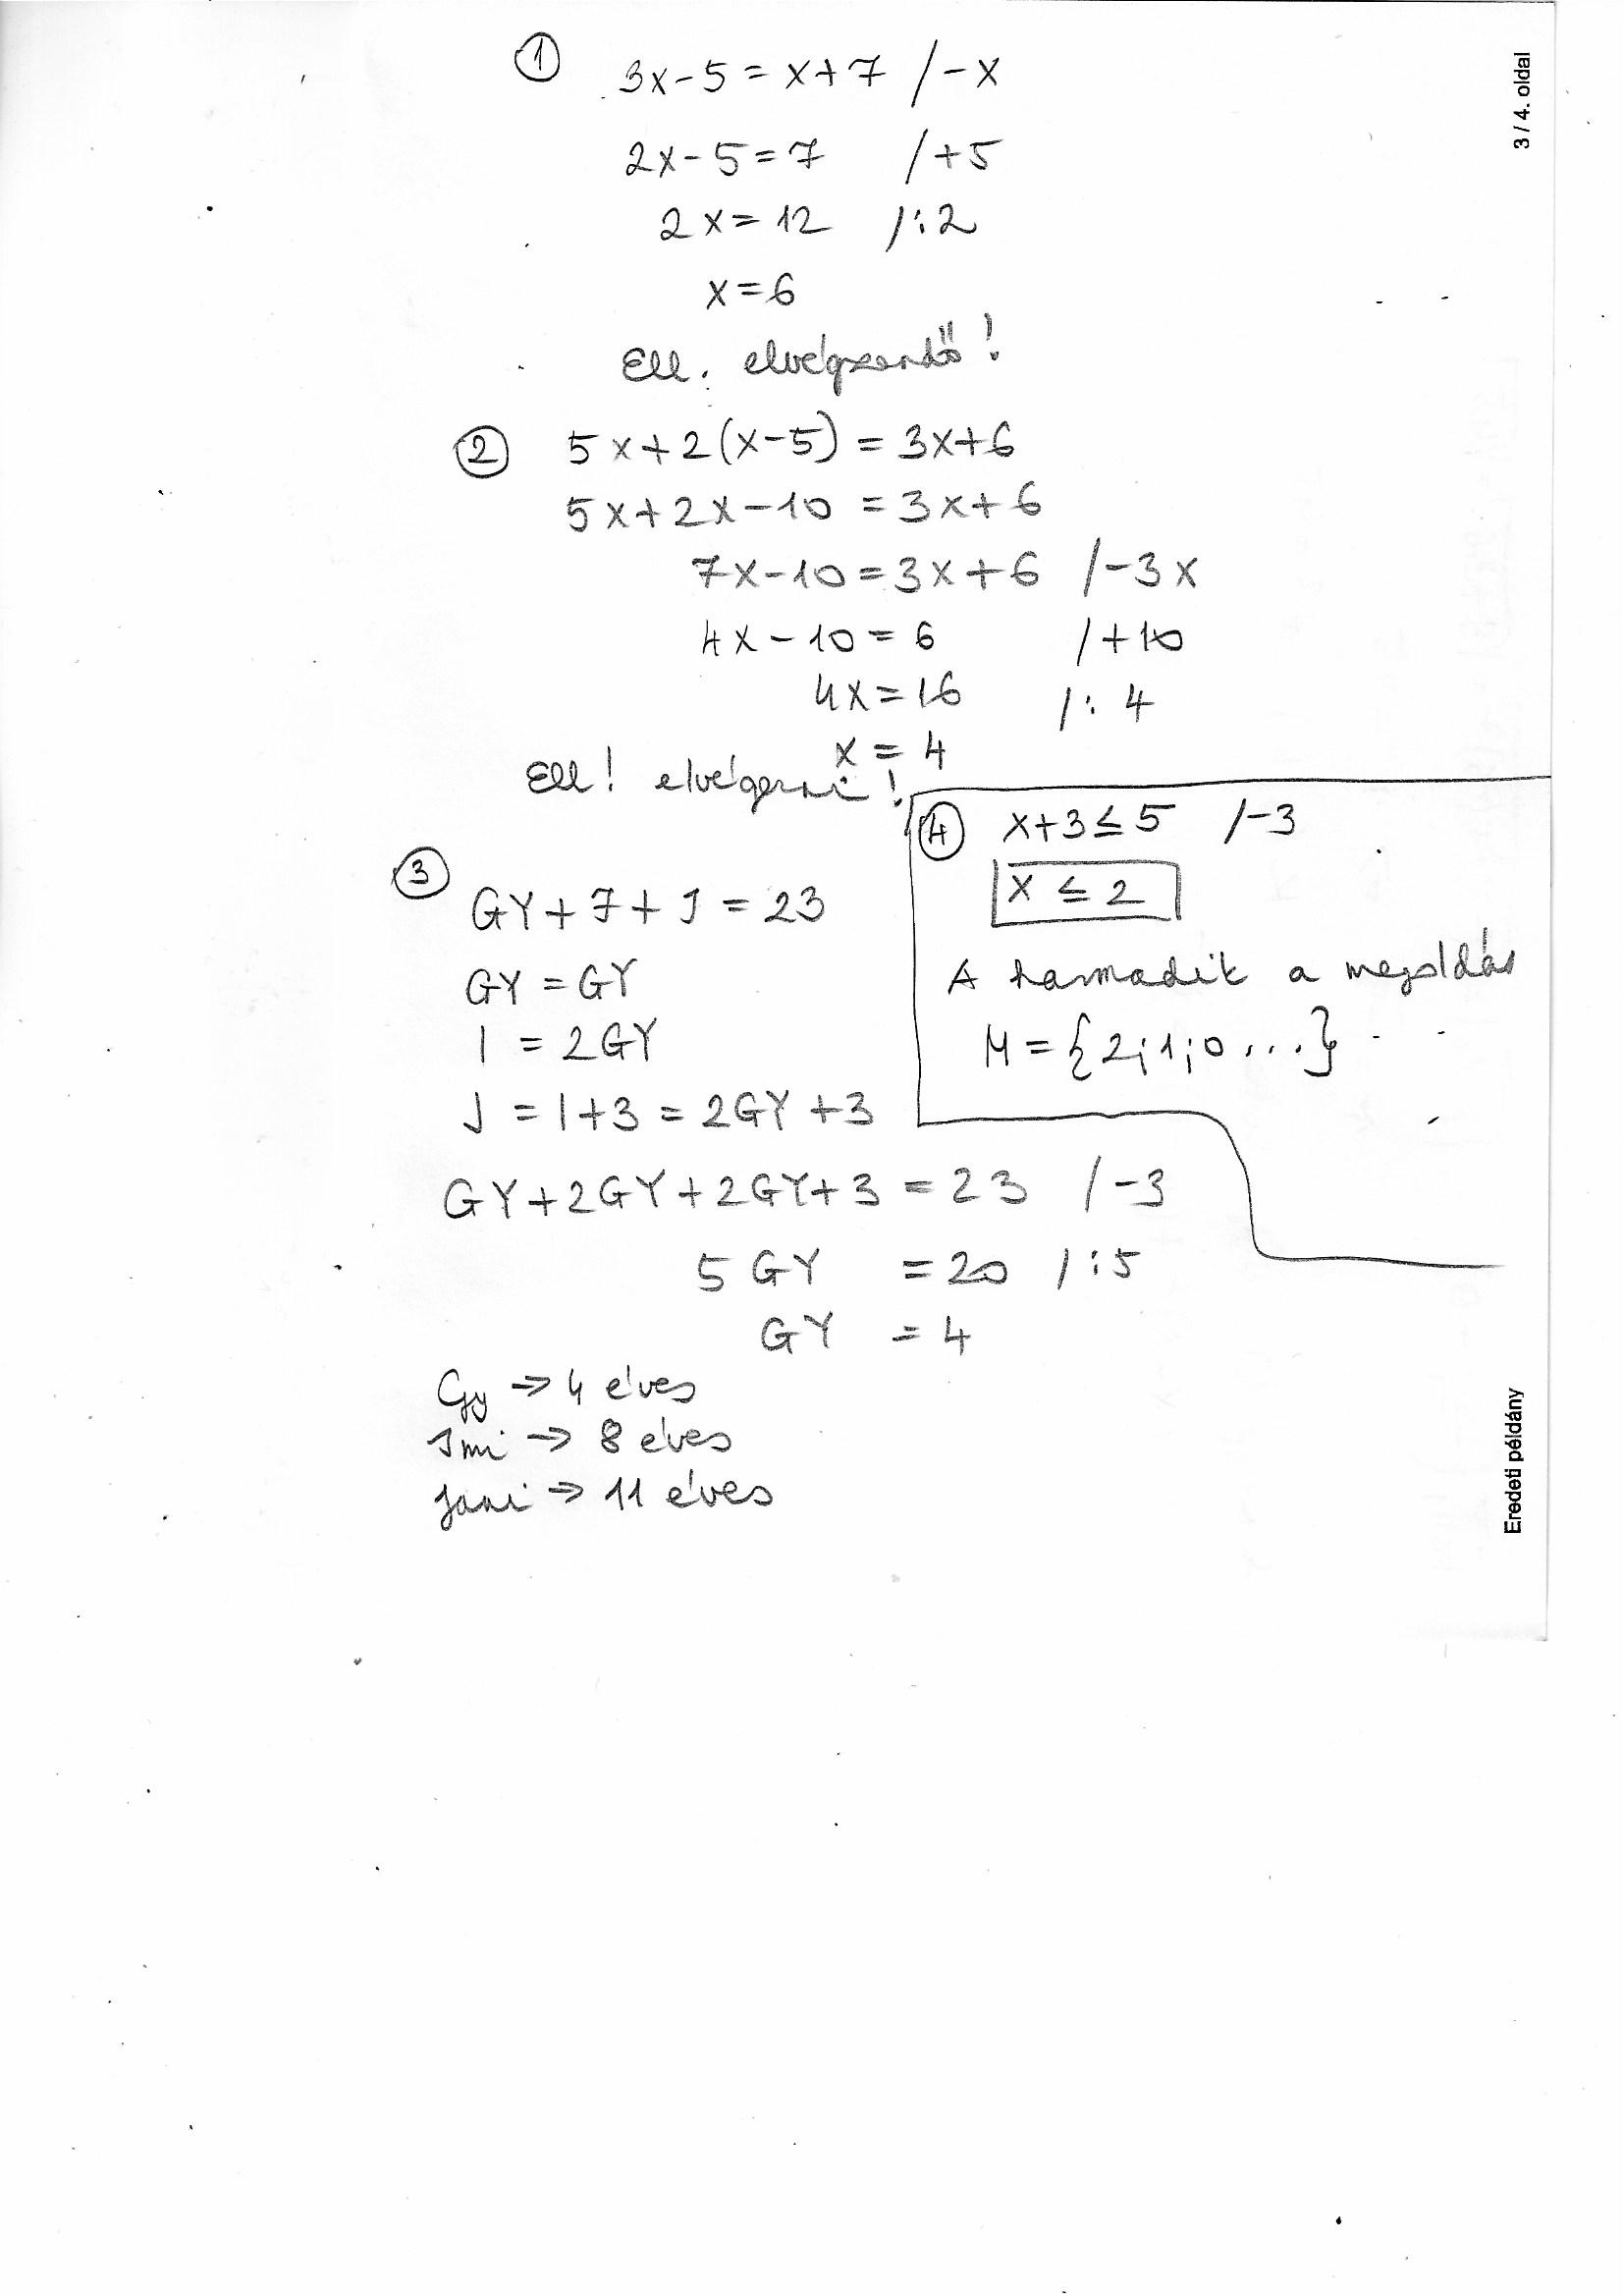 ① 3x-5=x+7 /-x
2x-5=7 /+5
2x=12 /:2
x=6
Ell. elvégzendő!
② 5x+2(x-5)=3x+6
5x+2x-10=3x+6
7x-10=3x+6 /-3x
4x-10=6 /+10
4x=16 /:4
x=4
Ell! elvégezni!
③
GY+7+J=23
GY=GY
I=2GY
J=I+3=2GY+3
GY+2GY+2GY+3=23 /-3
5GY=20 /:5
GY=4
Gy→4 éves
Imi→8 éves
Jani→11 éves
④ x+3≤5 /-3
x≤2
A harmadik a megoldás
M={2;1;0...}
3 / 4. oldal
Eredeti példány